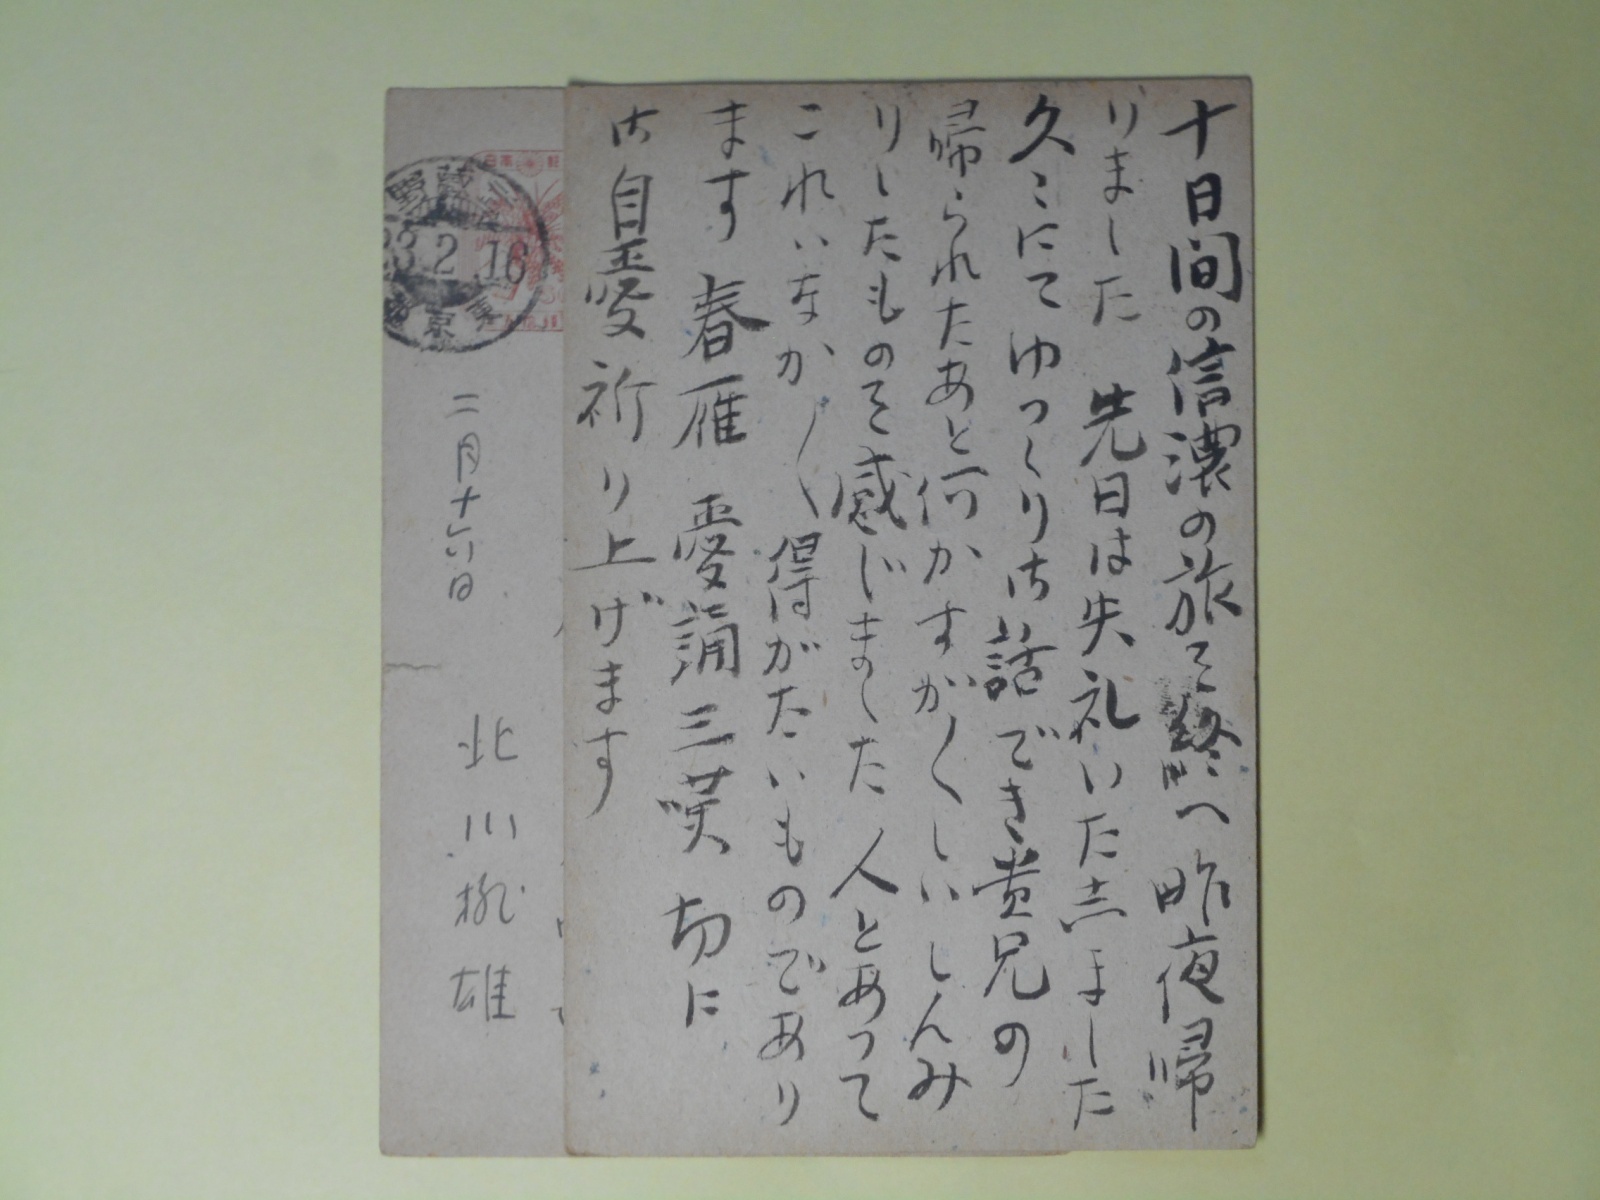 十日間の信濃の旅を終へ昨夜帰
りました 先日は失礼いた志ました
久々にてゆつくり御話でき貴兄の
帰られたあと何かすが〱しいしんみ
りしたものを感じました 人とあつて
これいなか〱得がたいものであり
ます 春雁 愛誦三嘆 切に
御自愛祈り上げます
日本
23.2.16
東京
二月十六日
北川桃雄